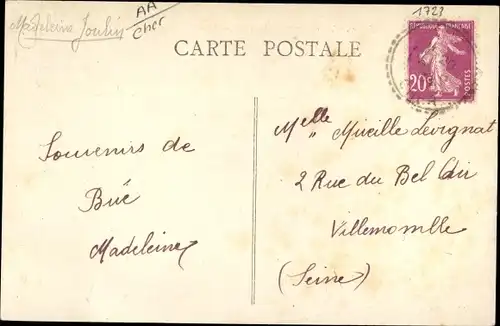 Madeleine Joulin
AA
Cher
1723
CARTE POSTALE
20c
POSTES
Souvenirs de
Büé
Madeleine
Melle Mireille Levignat
2 Rue du Bel Air
Villemomble
(Seine)